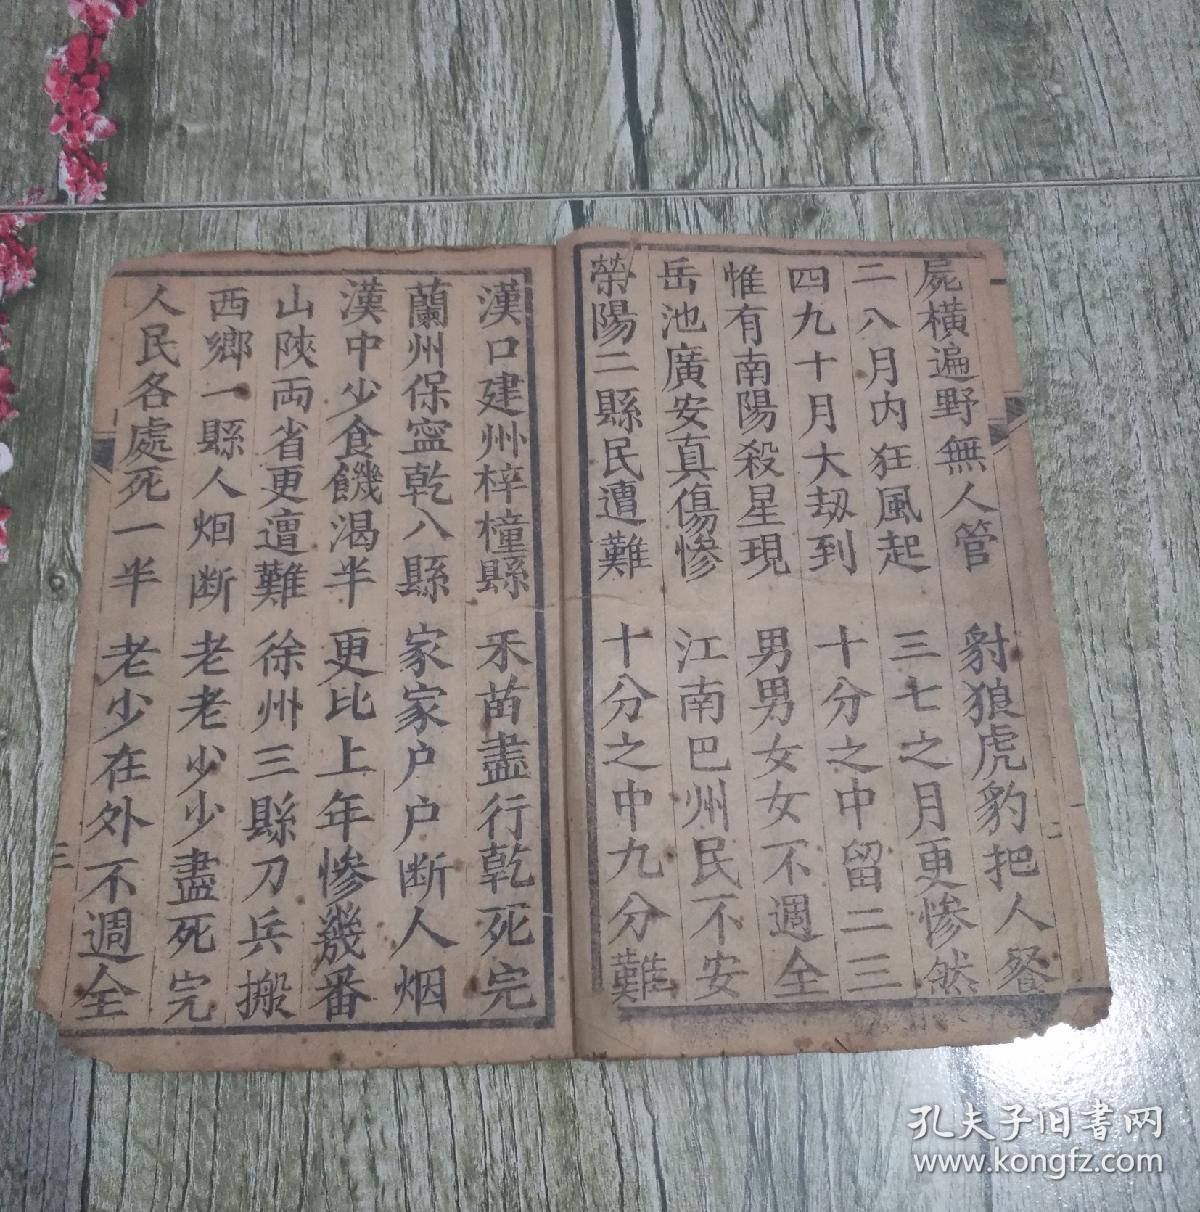 屍橫遍野無人管 豺狼虎豹把人餐
二八月内狂風起 三七之月更慘然
四九十月大劫到 十分之中留二三
惟有南陽殺星現 男男女女不週全
岳池廣安真傷慘 江南巴州民不安
榮陽二縣民遭難 十分之中九分難
漢口建州梓橦縣 禾苗盡行乾死完
蘭州保寍乾八縣 家家户户断人烟
漢中少食饑渴半 更比上年慘幾番
山陝両省更遭難 徐州三縣刀兵搬
西鄉一縣人烟断 老老少少盡死完
人民各處死一半 老少在外不週全
二
三
孔夫子旧书网
www.kongfz.com